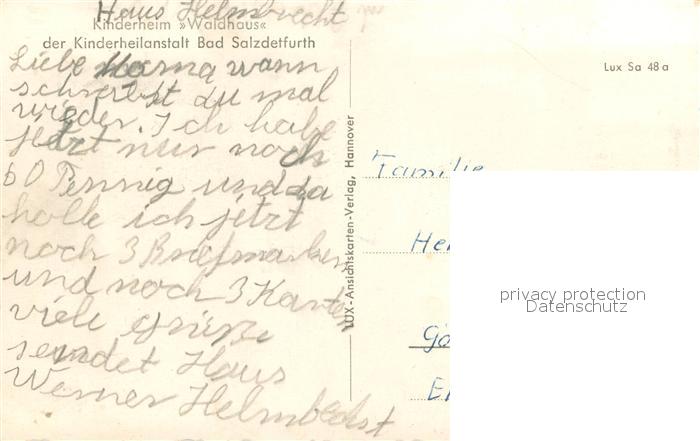 Haus Helmbrecht
Kinderheim »Waldhaus«
der Kinderheilanstalt Bad Salzdetfurth
Lux Sa 48 a
Liebe Mama wann
schreibst du mal
wieder. Ich habe
jetzt nur noch
60 Pennig und da
holle ich jetzt
noch 3 Briefmarken
und noch 3 Karten
viele Grüße
sendet Haus
Werner Helmbechst
LUX-Ansichtskarten-Verlag, Hannover
Familie
He
Go
E
privacy protection
Datenschutz